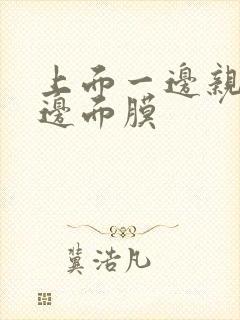 上面一邊親
邊面膜
冀浩凡